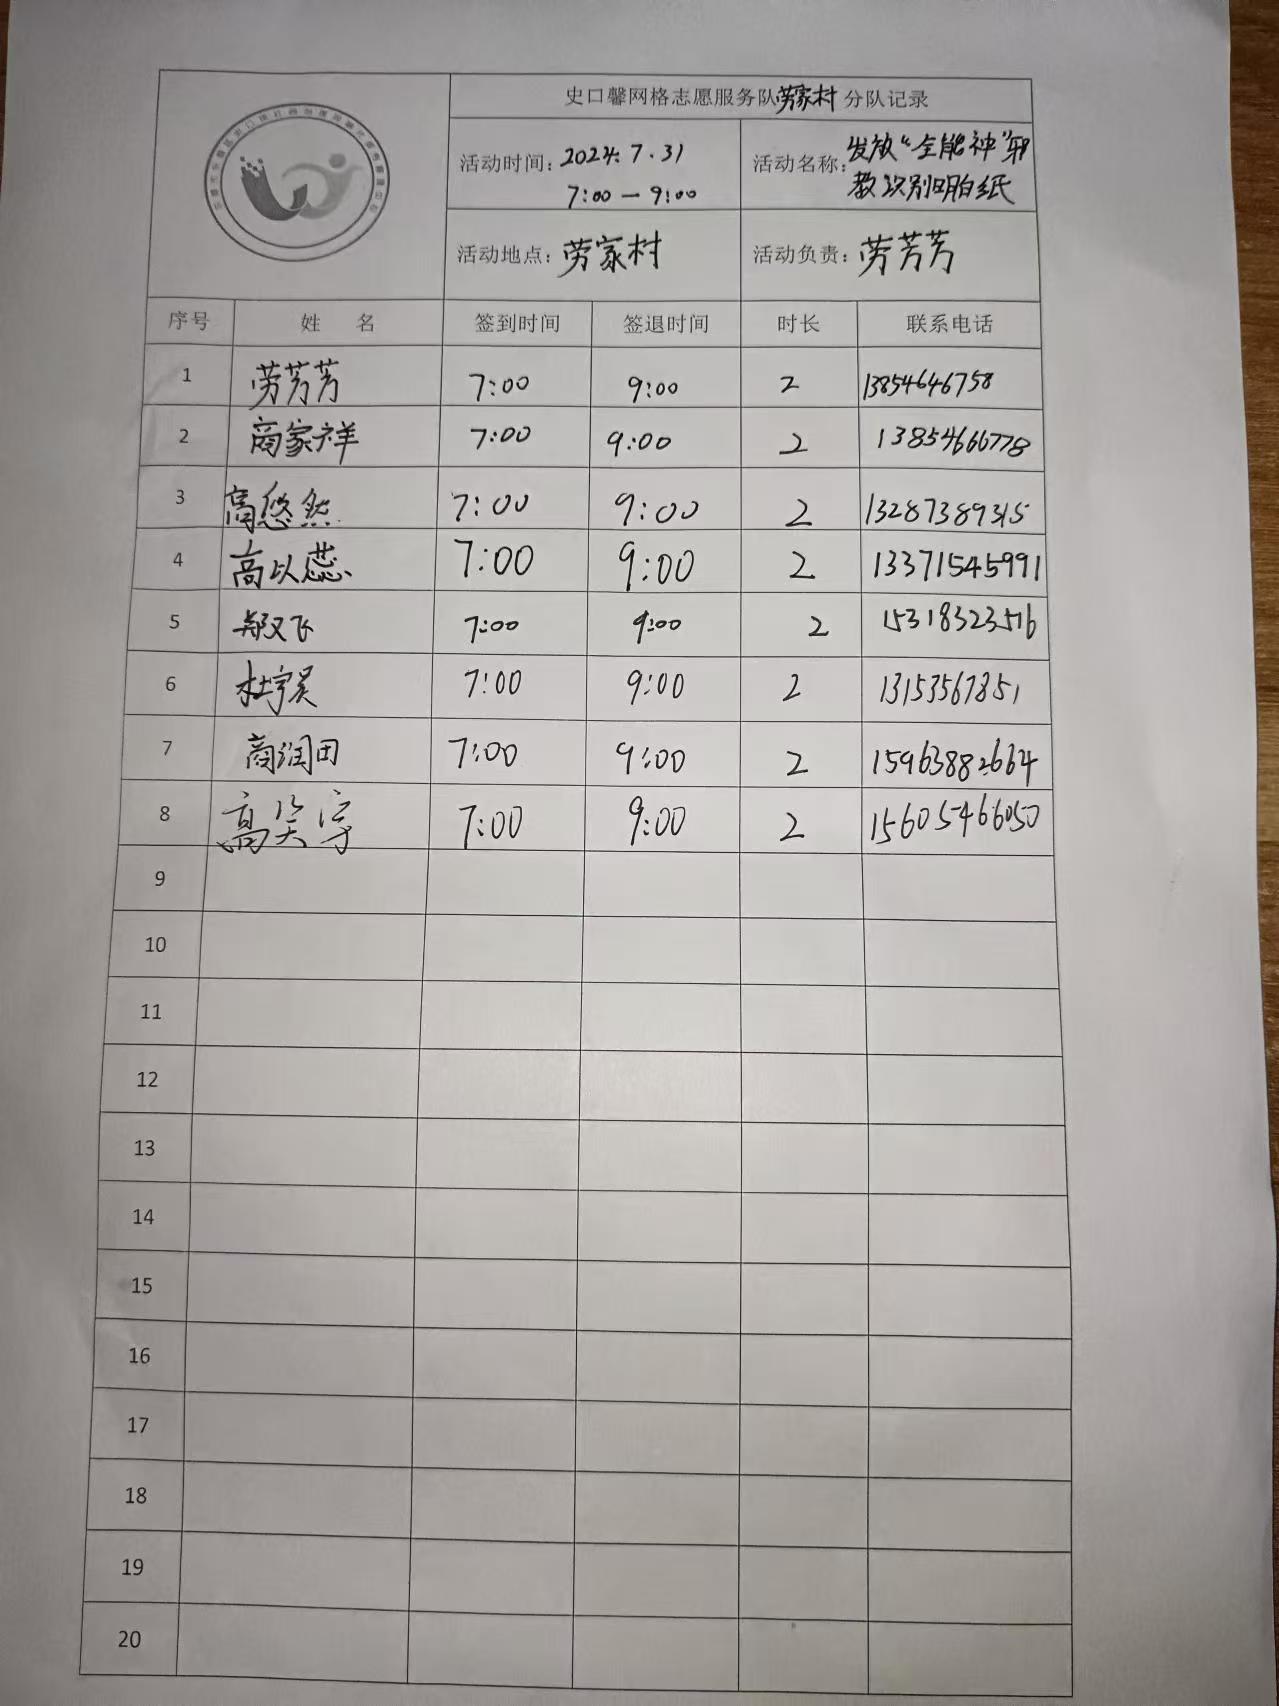 史口馨网格志愿服务队劳家村分队记录
活动时间：2024.7.31
7:00－9:00
活动名称：发放“全能神”邪
教识别明白纸
活动地点：劳家村
活动负责：劳芳芳
序号 姓 名 签到时间 签退时间 时长 联系电话
1 劳芳芳 7:00 9:00 2 13854646758
2 商家祥 7:00 9:00 2 13854666778
3 高悠然 7:00 9:00 2 13287389315
4 高以蕊 7:00 9:00 2 13371545991
5 郑又飞 7:00 9:00 2 15318323516
6 杜宇昊 7:00 9:00 2 13153567851
7 商润田 7:00 9:00 2 15963882664
8 高笑 7:00 9:00 2 15605466050
9
10
11
12
13
14
15
16
17
18
19
20